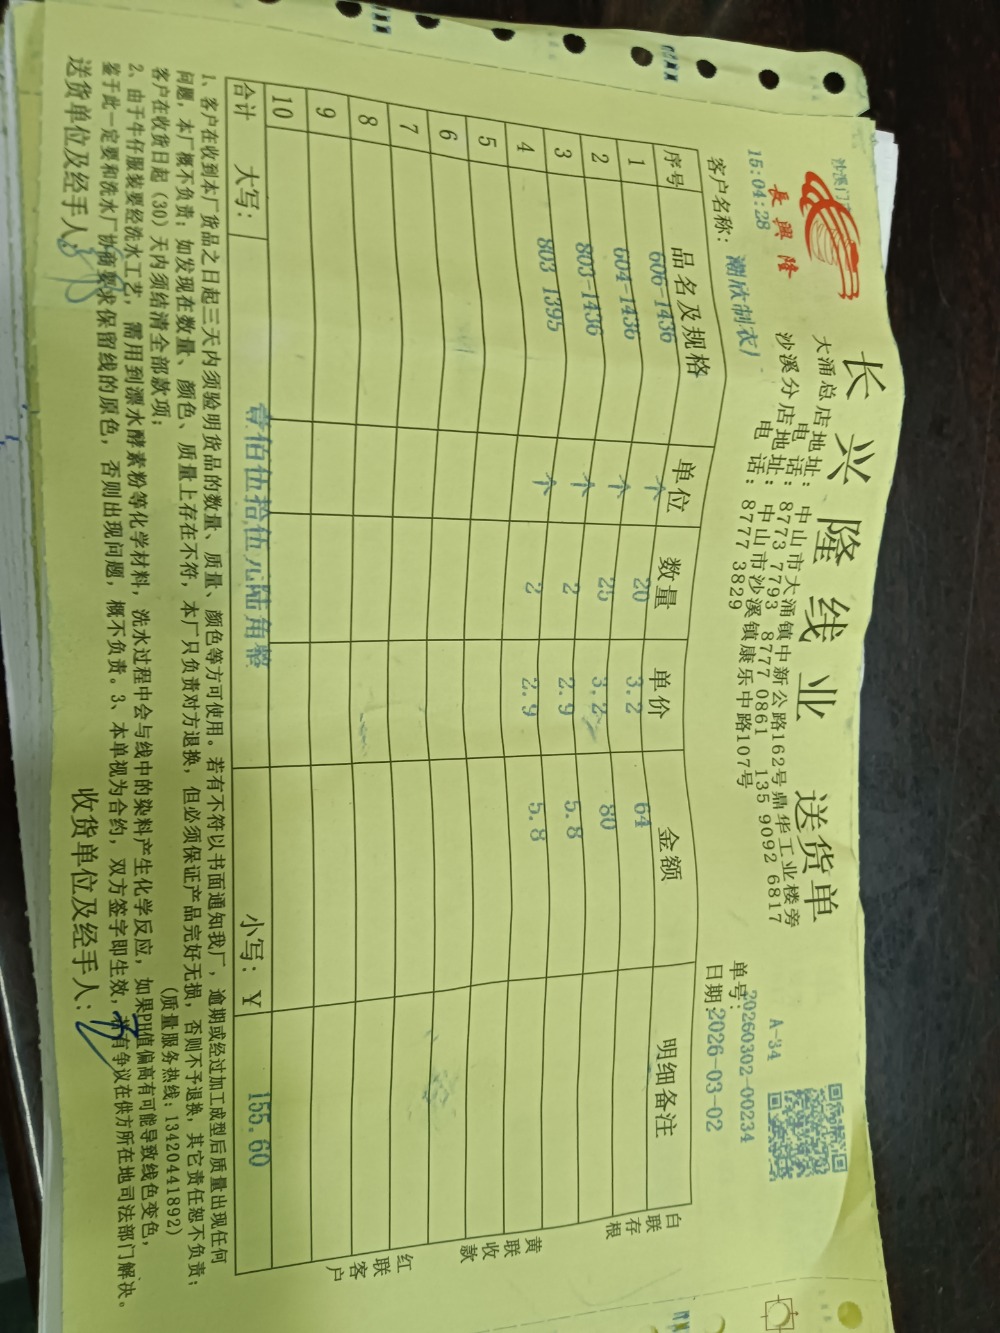 沙溪门
長興隆
长兴隆线业 送货单
大涌总店地址：中山市大涌镇中新公路162号鼎华工业楼旁
电 话：8773 7793 8777 0861 135 9092 6817
沙溪分店地址：中山市沙溪镇康乐中路107号
电 话：8777 3829
A-34
15:04:28
单号：20260302-00234
客户名称：潮欣制衣厂
日期：2026-03-02
序号 品名及规格 单位 数量 单价 金额 明细备注
1 606-1436 个 20 3.2 64
2 604-1436 个 25 3.2 80
3 803-1436 个 2 2.9 5.8
4 803 1395 个 2 2.9 5.8
5
6
7
8
9
10
合计 大写：壹佰伍拾伍元陆角整 小写：Y 155.60
白联存根
黄联收款
红联客户
1、客户在收到本厂货品之日起三天内须验明货品的数量、质量、颜色等方可使用。若有不符以书面通知我厂，逾期或经过加工成型后质量出现任何
问题，本厂概不负责；如发现在数量、颜色、质量上存在不符，本厂只负责对方退换，但必须保证产品完好无损，否则不予退换，其它责任恕不负责；
客户在收货日起（30）天内须结清全部款项； （质量服务热线：13420441892）
2、由于牛仔服装要经洗水工艺，需用到漂水酵素粉等化学材料，洗水过程中会与线中的染料产生化学反应，如果PH值偏高有可能导致线色变色，
鉴于此一定要和洗水厂协商要求保留线的原色，否则出现问题，概不负责。3、本单视为合约，双方签字即生效，若有争议在供方所在地司法部门解决。
送货单位及经手人： 收货单位及经手人：